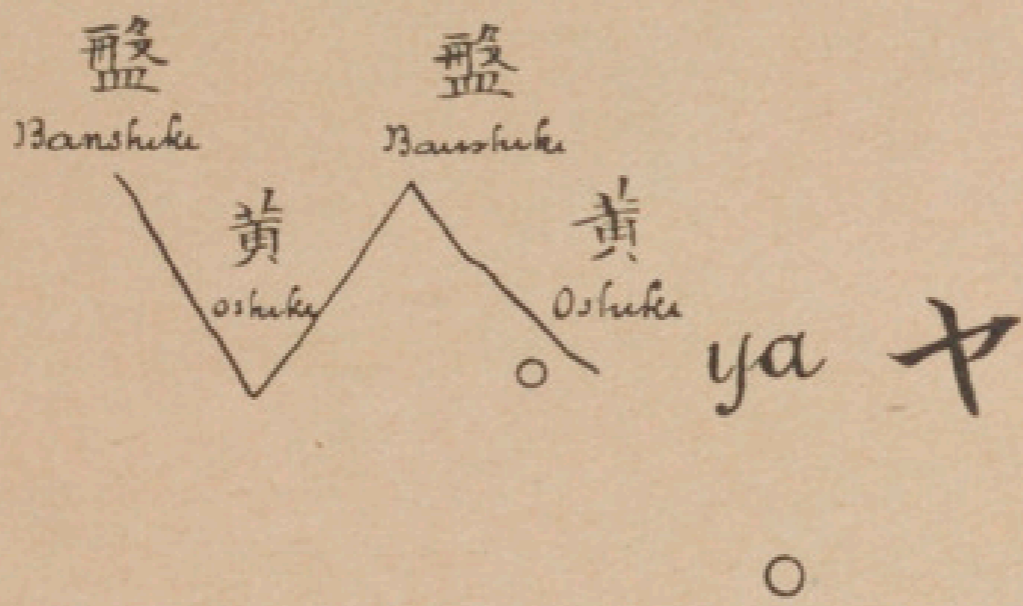 盤 盤
Banshiki Banshiki
黄 黄
Oshiki Oshiki
ya ヤ